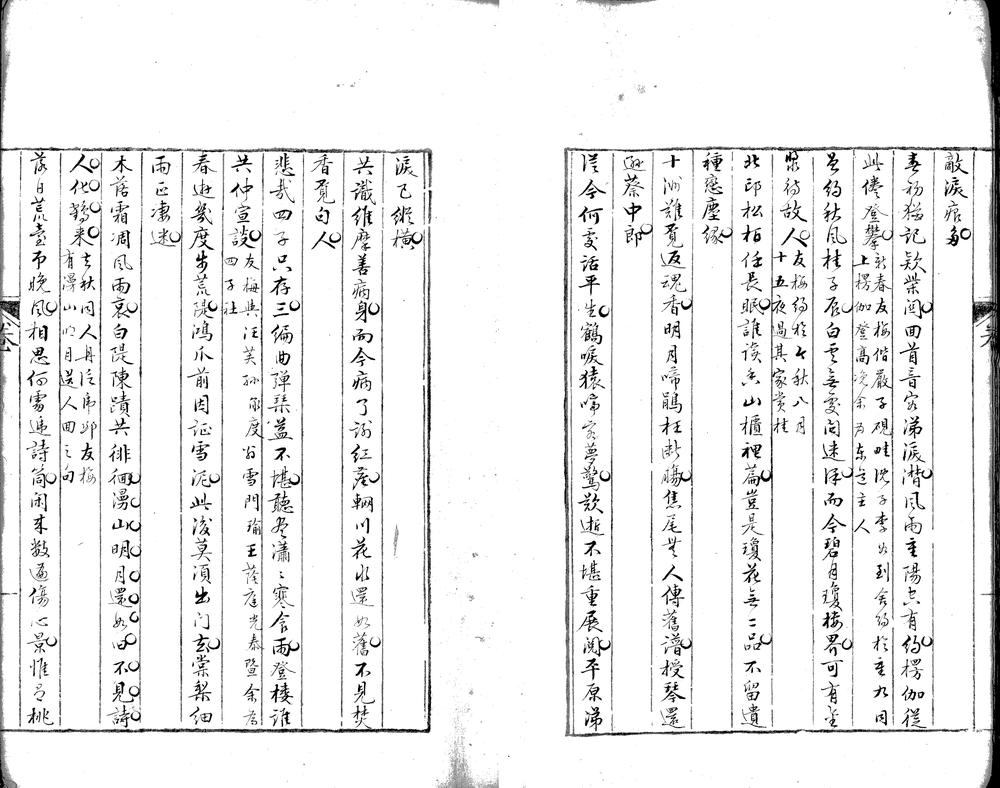 敲淚痕多
春初猶記款柴関回首音容涕淚潸風雨重陽空有約楞伽從
此倦登攀新春友梅偕嚴子硯畦沈子李 到舍約於重九同
上楞伽登高 余為東道主人
曾約秋風桂子辰白雲無處問迷津而今碧月瓊樓界可有
 待故人友梅約於 秋八月
十五夜過其家賞桂
北邙松柏任長眠誰 香山櫃裡篇豈是瓊花無二品不留遺
種 塵緣
十洲難覓返魂香明月啼鵑枉斷腸焦尾無人傳舊譜授琴還
 蔡中郎
從今何處話平生鶴唳猿啼客夢驚欲逝不堪重展閱平原涕
淚已縱橫
共識維摩善病身而今病了 紅塵輞川花水還如舊不見焚
香覓句人
悲哉四子只存三編曲彈琴益不堪聽盡瀟瀟寒食雨登樓誰
共仲宣談友梅與汪芙孫 度 雪門瑜王蔭庭光泰暨余為
四子社
春遊幾度步荒隄鴻爪前因証雪泥此後莫須出門去棠梨細
雨正凄迷
木落霜凋風雨哀白隄陳蹟共徘徊漫山明月還如舊不見詩
人化鶴來去秋同人舟泛 邱友梅
有漫山明月送人回之句
落日荒臺弔晚風相思何處遞詩筒閑來數遍傷心景惟有桃